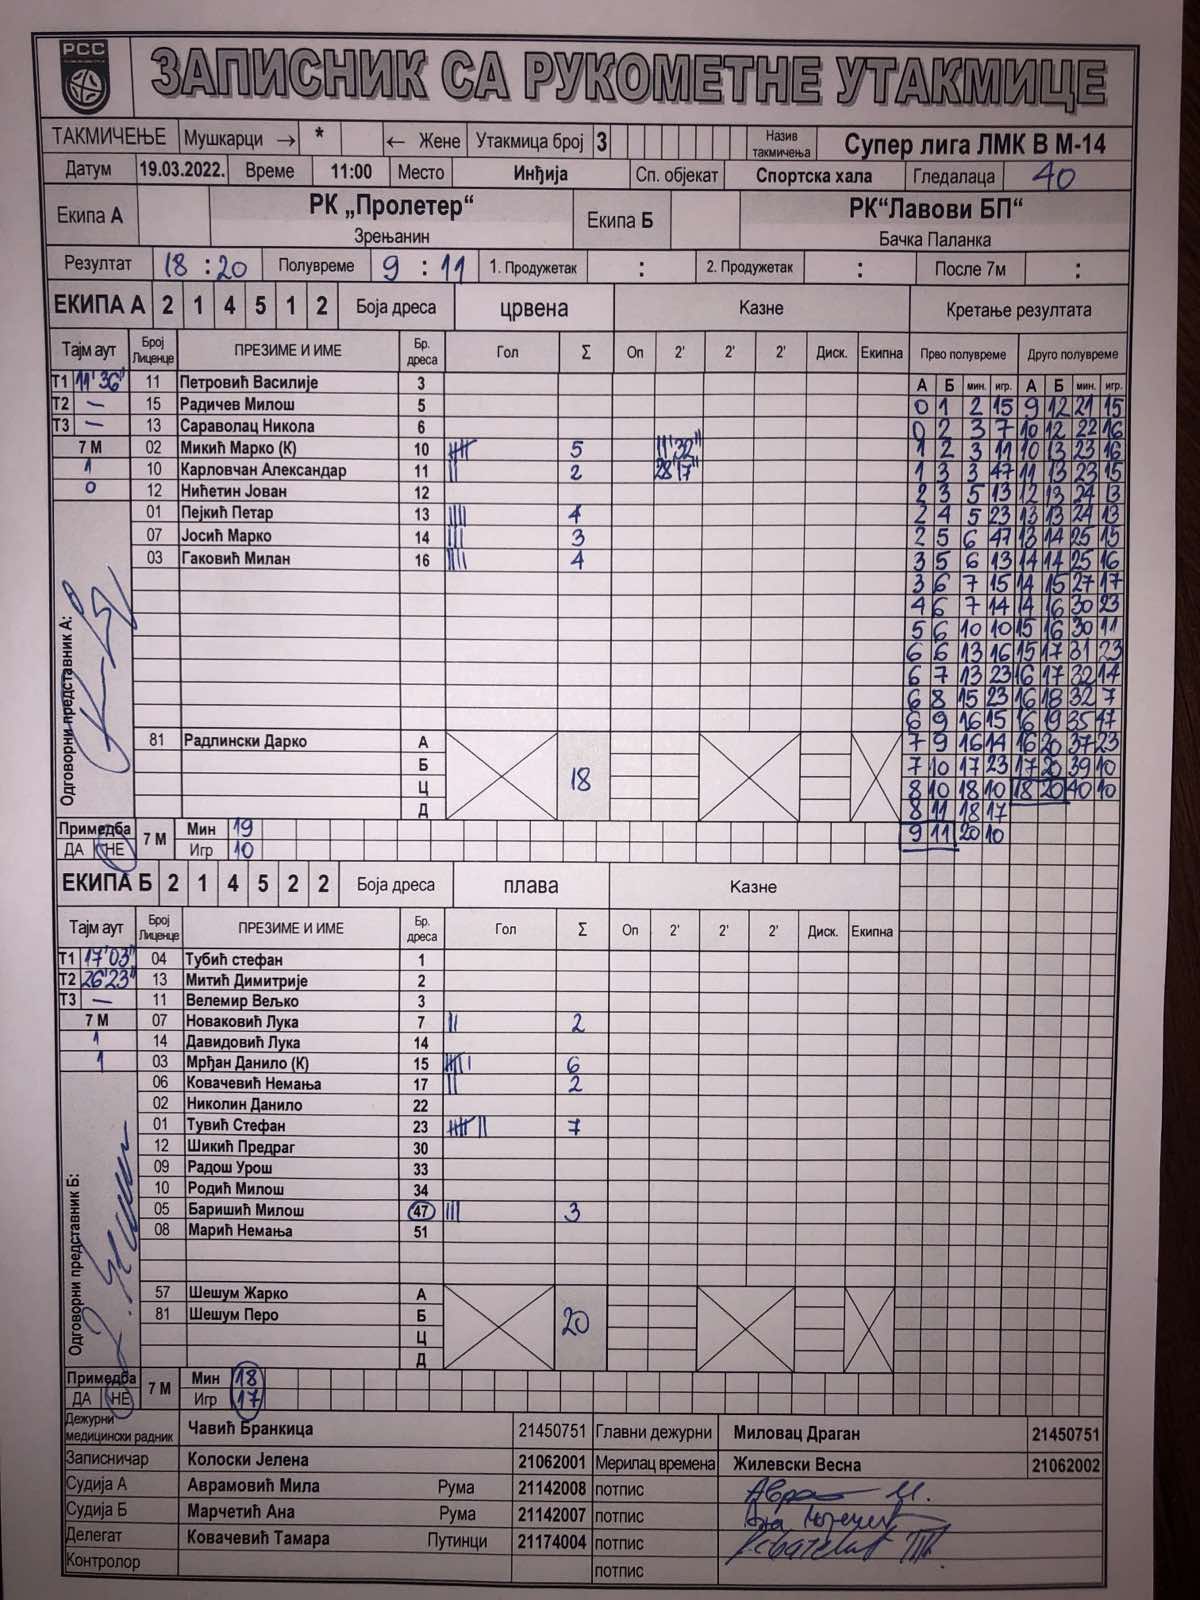 РСС
ЗАПИСНИК СА РУКОМЕТНЕ УТАКМИЦЕ
ТАКМИЧЕЊЕ Мушкарци → * ← Жене Утакмица број 3 Назив такмичења Супер лига ЛМК В М-14
Датум 19.03.2022. Време 11:00 Место Инђија Сп. објекат Спортска хала Гледалаца 40
Екипа А РК „Пролетер“ Екипа Б РК“Лавови БП“
Зрењанин Бачка Паланка
Резултат 18 : 20 Полувреме 9 : 11 1. Продужетак : 2. Продужетак : После 7м :
ЕКИПА А 2 1 4 5 1 2 Боја дреса црвена Казне Кретање резултата
Тајм аут Број Лиценце ПРЕЗИМЕ И ИМЕ Бр. дреса Гол Σ Оп 2' 2' 2' Диск. Екипна Прво полувреме Друго полувреме
А Б мин. игр. А Б мин. игр.
Т1 11'36" 11 Петровић Василије 3
Т2 — 15 Радичев Милош 5
Т3 — 13 Сараволац Никола 6
7 М 02 Микић Марко (К) 10 5 11'32"
1 10 Карловчан Александар 11 2 28'17"
0 12 Нићетин Јован 12
01 Пејкић Петар 13 4
07 Јосић Марко 14 3
03 Гаковић Милан 16 4
0 1 2 15 9 12 21 15
0 2 3 7 10 12 22 16
1 2 3 11 10 13 23 16
1 3 3 47 11 13 23 15
2 3 5 13 12 13 24 13
2 4 5 23 13 13 24 13
2 5 6 47 13 14 25 15
3 5 6 13 14 14 25 16
3 6 7 15 14 15 27 17
4 6 7 14 14 16 30 23
5 6 10 10 15 16 30 11
6 6 13 16 15 17 31 23
6 7 13 23 16 17 32 14
6 8 15 23 16 18 32 7
6 9 16 15 16 19 35 47
7 9 16 14 16 20 37 23
7 10 17 23 17 20 39 10
8 10 18 10 18 20 40 10
8 11 18 17
9 11 20 10
Одговорни представник А:
81 Радлински Дарко А
Б
Ц 18
Д
Примедба 7 М Мин 19
ДА НЕ Игр 10
ЕКИПА Б 2 1 4 5 2 2 Боја дреса плава Казне
Тајм аут Број Лиценце ПРЕЗИМЕ И ИМЕ Бр. дреса Гол Σ Оп 2' 2' 2' Диск. Екипна
Т1 17'03" 04 Тубић стефан 1
Т2 26'23" 13 Митић Димитрије 2
Т3 — 11 Велемир Вељко 3
7 М 07 Новаковић Лука 7 2
1 14 Давидовић Лука 14
1 03 Мрђан Данило (К) 15 6
06 Ковачевић Немања 17 2
02 Николин Данило 22
01 Тувић Стефан 23 7
12 Шикић Предраг 30
09 Радош Урош 33
10 Родић Милош 34
05 Баришић Милош 47 3
08 Марић Немања 51
Одговорни представник Б:
57 Шешум Жарко А
81 Шешум Перо Б 20
Ц
Д
Примедба 7 М Мин 18
ДА НЕ Игр 17
Дежурни медицински радник Чавић Бранкица 21450751 Главни дежурни Миловац Драган 21450751
Записничар Колоски Јелена 21062001 Мерилац времена Жилевски Весна 21062002
Судија А Аврамовић Мила Рума 21142008 потпис
Судија Б Марчетић Ана Рума 21142007 потпис
Делегат Ковачевић Тамара Путинци 21174004 потпис
Контролор потпис